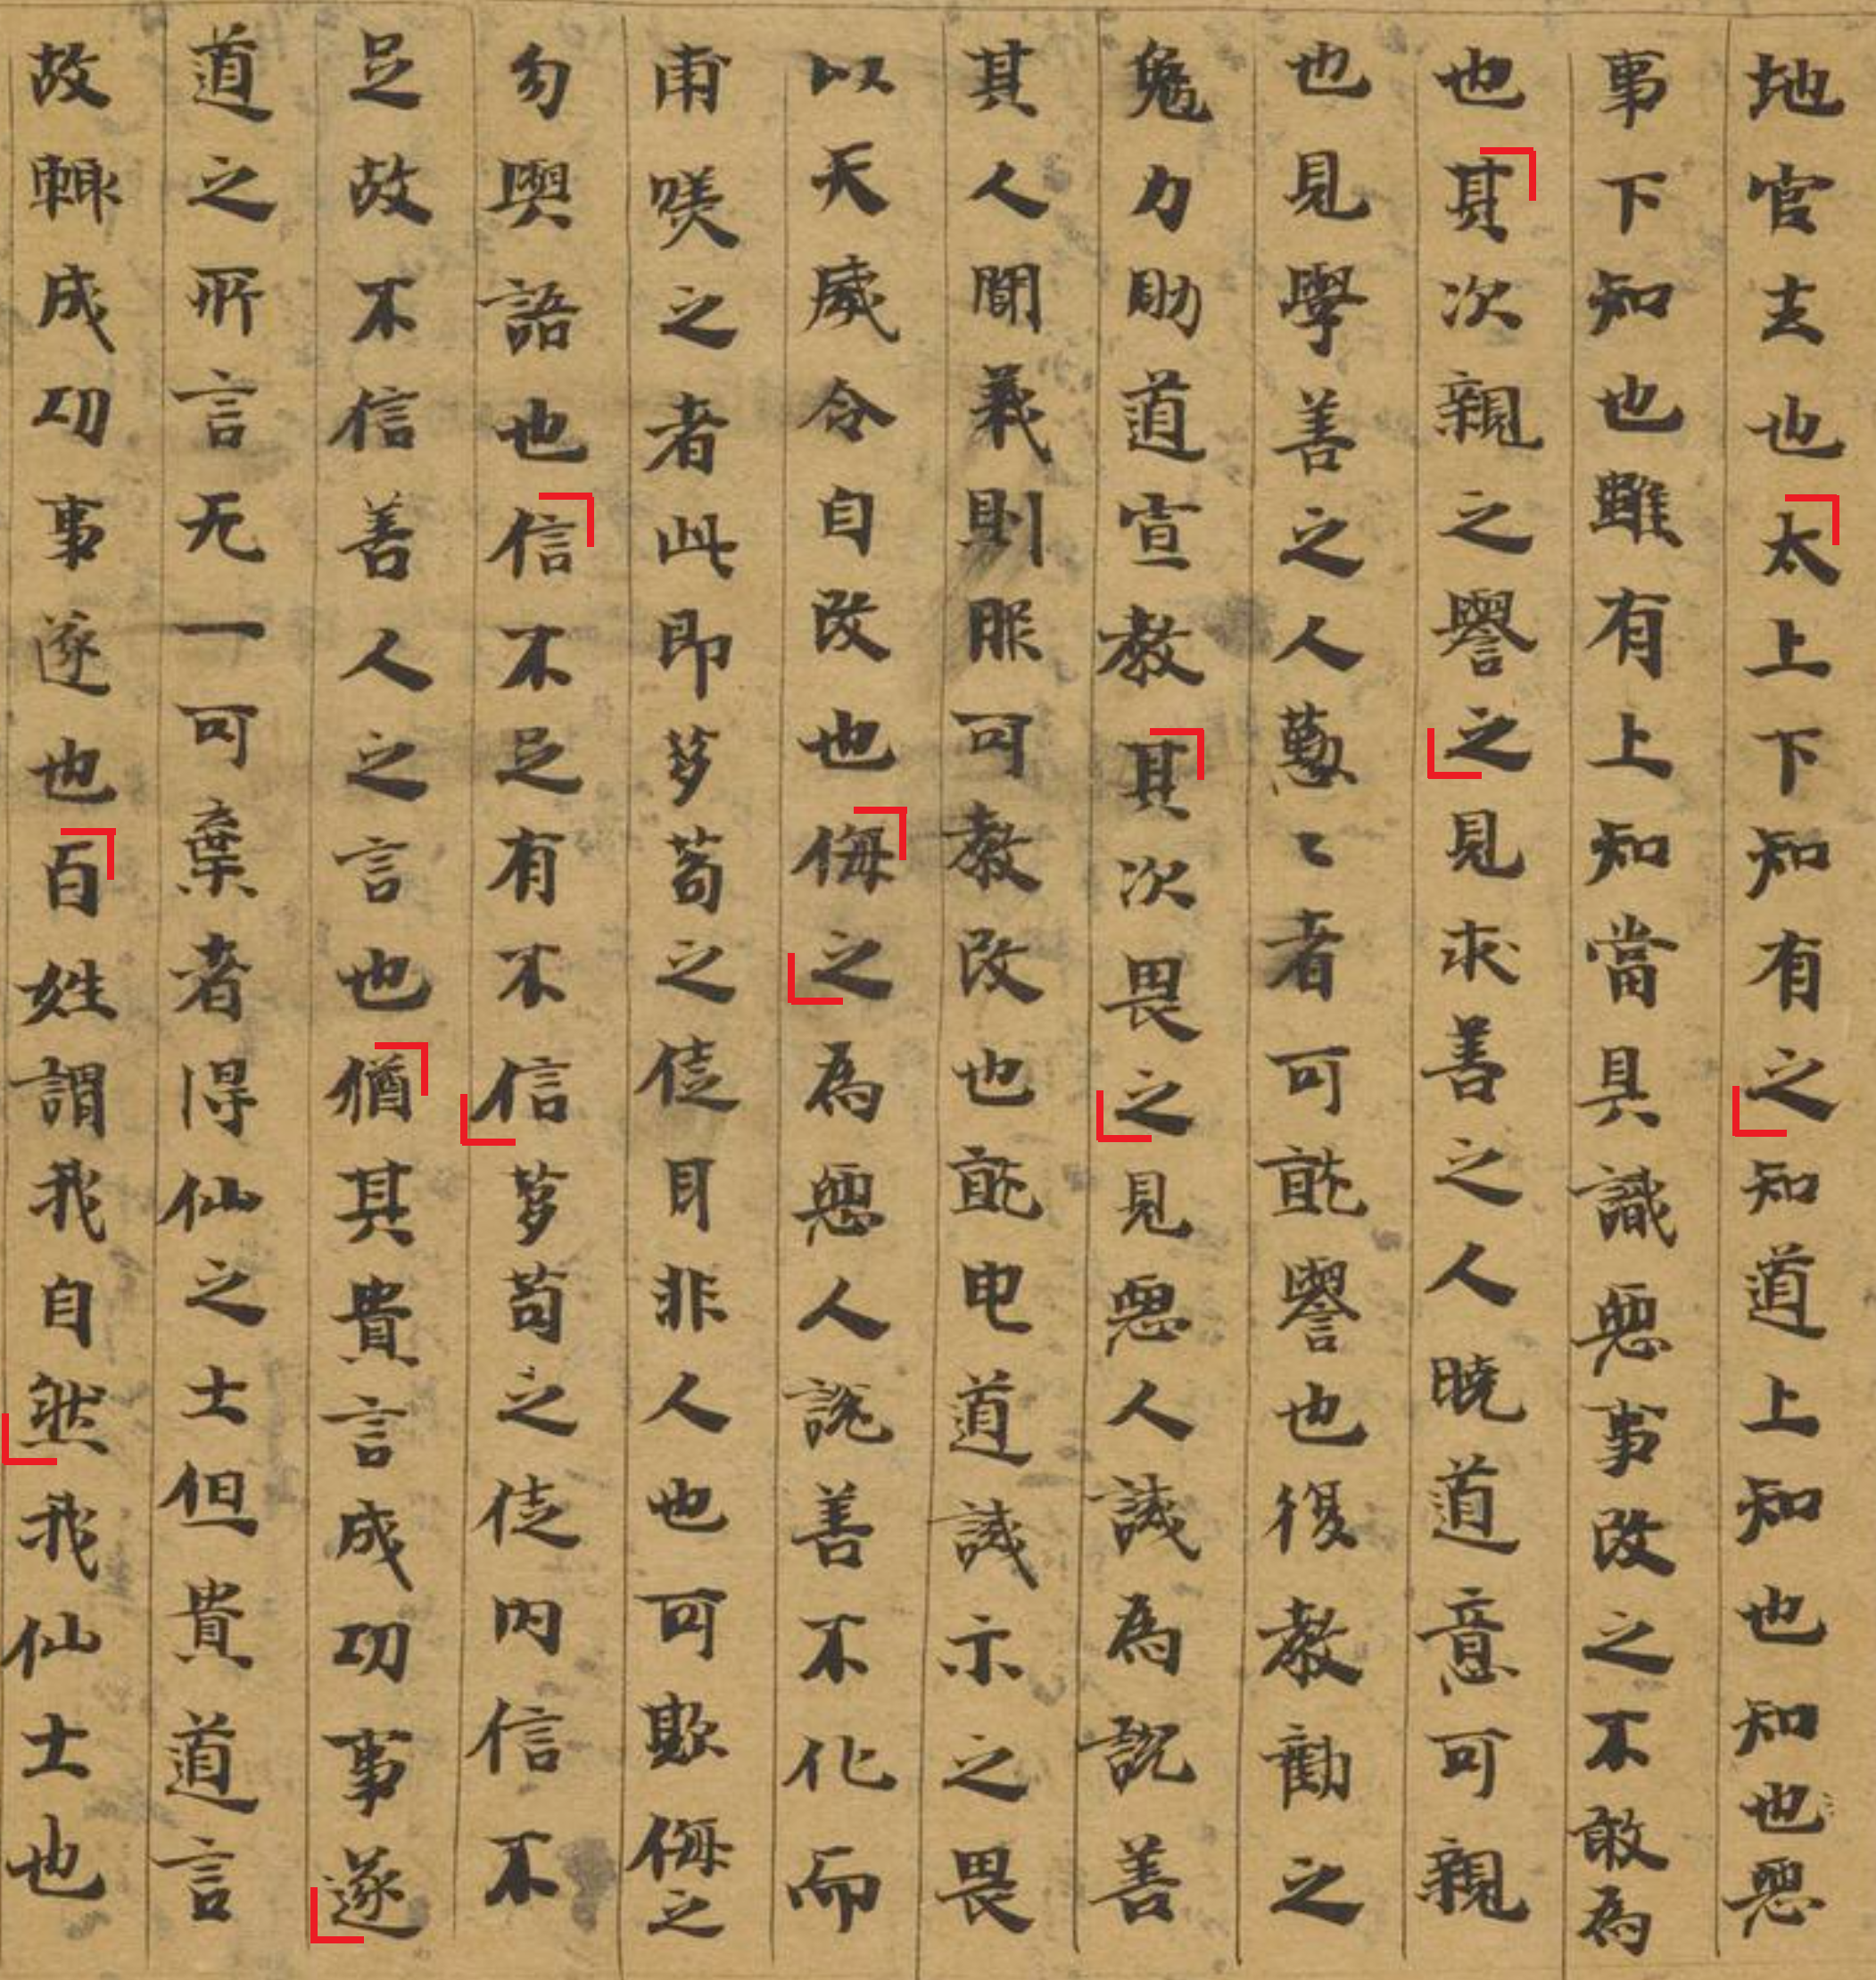 地官去也太上下知有之知道上知也知也惡
事下知也雖有上知當具識惡事改之不敢為
也其次親之譽之見求善之人曉道意可親
也見學善之人懃〻者可就譽也復教勸之
勉力助道宣教其次畏之見惡人誡為說善
其人聞義則服可教改也就申道誡示之畏
以天威令自改也侮之為惡人說善不化而
甫𠯋之者此即芻苟之徒耳非人也可欺侮之
勿與語也信不足有不信芻苟之徒內信不
足故不信善人之言也猶其貴言成功事遂
道之所言无一可棄者得仙之士但貴道言
故輙成功事遂也百姓謂我自然我仙士也